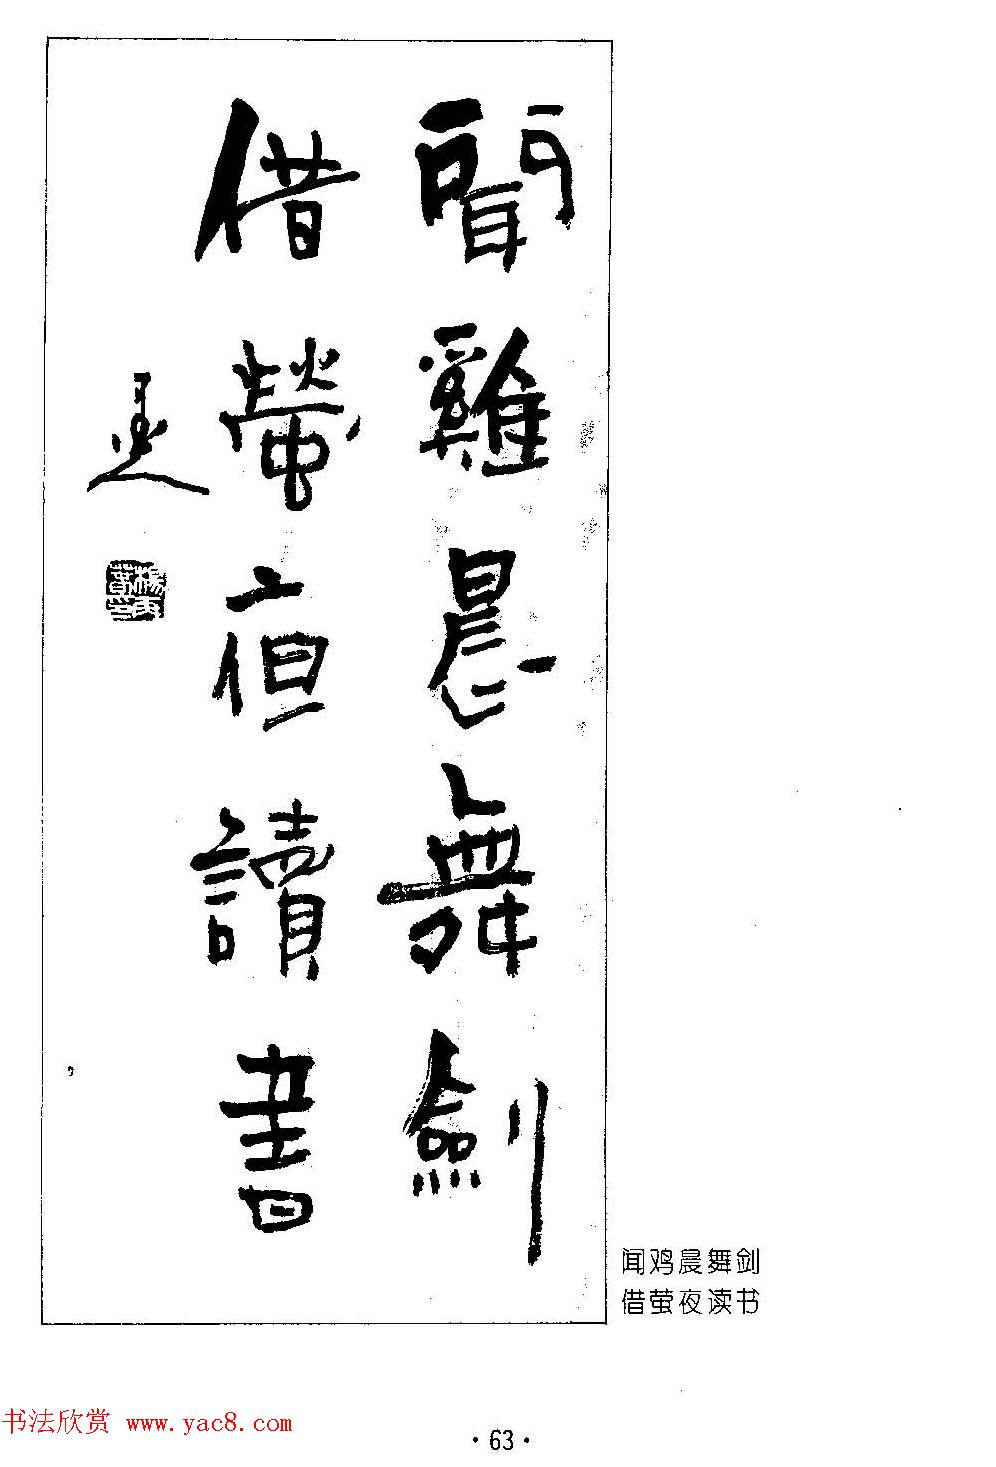 聞雞晨舞劍
借螢夜讀書
闻鸡晨舞剑
借萤夜读书
书法欣赏 www.yac8.com
·63·